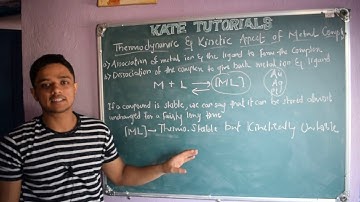 KATE TUTORIALS
Thermodynamic & Kinetic Aspect of Metal
a) Association of metal ion & the ligand to form the complex
b) Dissociation of the complex to give back metal ion & ligand
M + L ⇌ [ML]
If a compound is stable, we can say that it can be stored almost
unchanged for a fairly long time
[ML] → Thermo. Stable but Kinetically Unstable